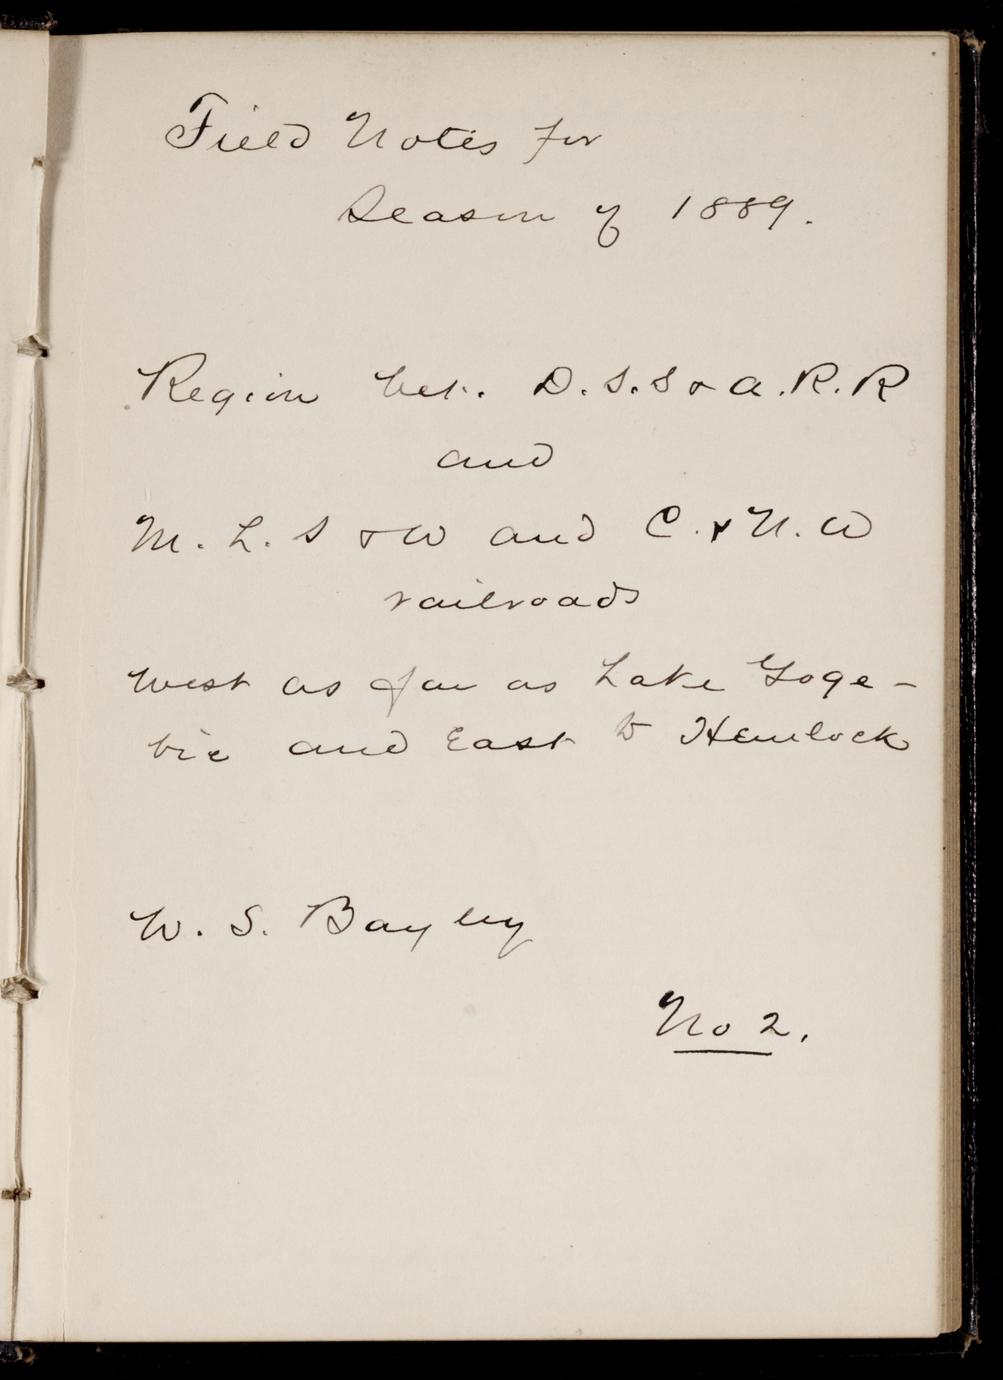 Field Notes for
Season of 1889.
Region bet. D.S.S & A.R.R
and
M.L.S & W and C. & N.W
railroads
West as far as Lake Goge-
bic and East to Hemlock
W. S. Bayley
No 2.